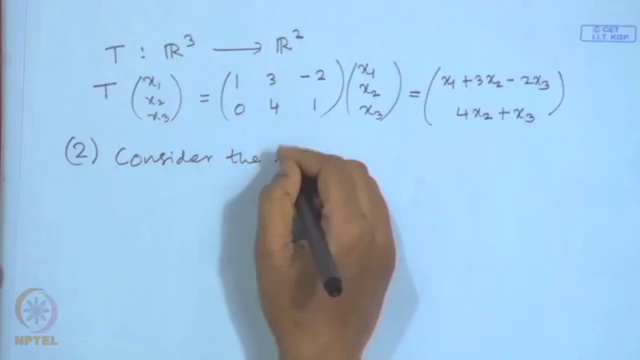 © CET
I.I.T. KGP
T : ℝ³ ⟶ ℝ²
T (x₁ x₂ x₃) = (1 3 -2 0 4 1) (x₁ x₂ x₃) = (x₁+3x₂-2x₃ 4x₂+x₃)
(2) Consider the
NPTEL